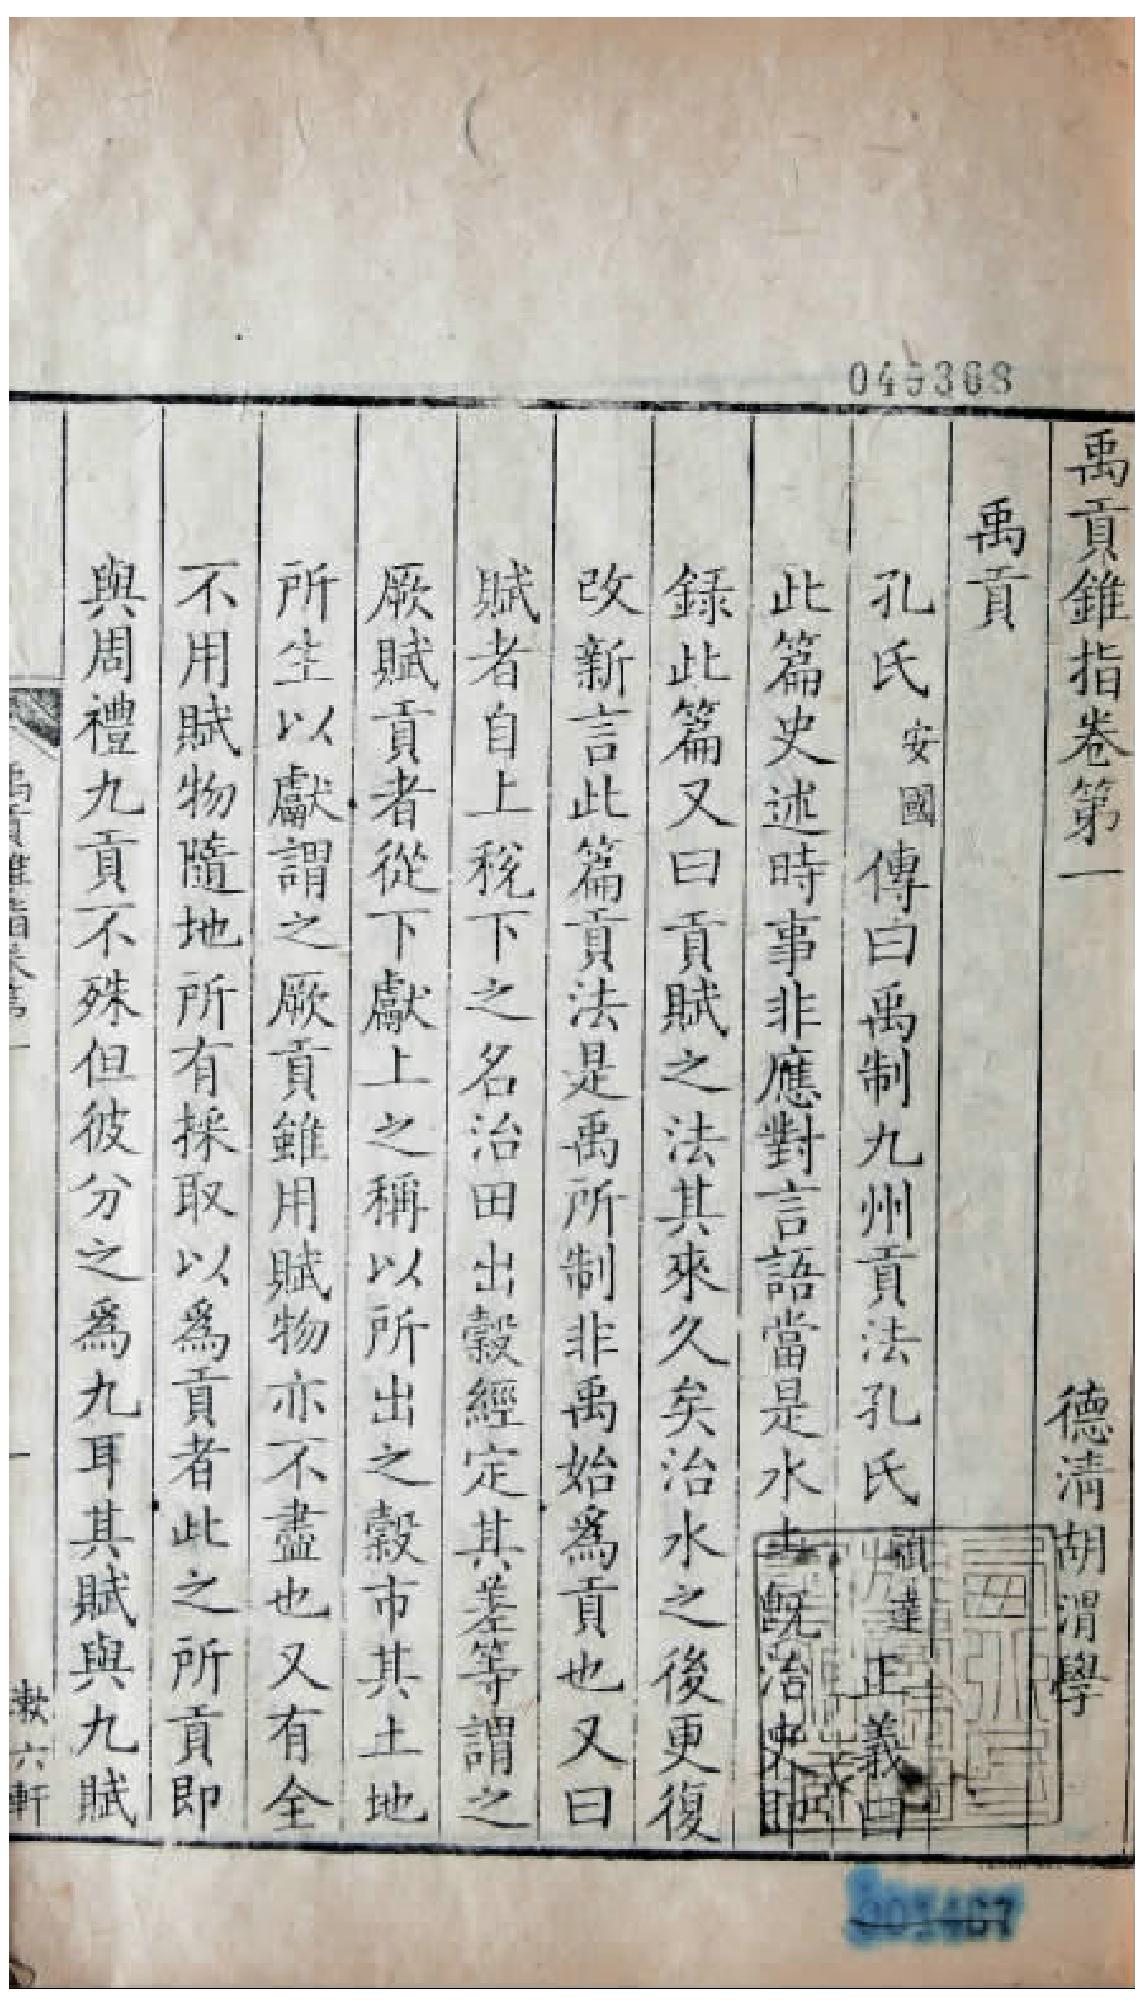 049368
禹貢錐指卷第一
德清胡渭學
禹貢
孔氏安國傳曰禹制九州貢法孔氏穎達正義曰
此篇史述時事非應對言語當是水土既治史即
錄此篇又曰貢賦之法其來久矣治水之後更復
改新言此篇貢法是禹所制非禹始爲貢也又曰
賦者自上稅下之名治田出穀經定其差等謂之
厥賦貢者從下獻上之稱以所出之穀市其土地
所生以獻謂之厥貢雖用賦物亦不盡也又有全
不用賦物隨地所有採取以爲貢者此之所貢即
與周禮九貢不殊但彼分之爲九耳其賦與九賦
禹貢錐指卷第一
一
漱六軒